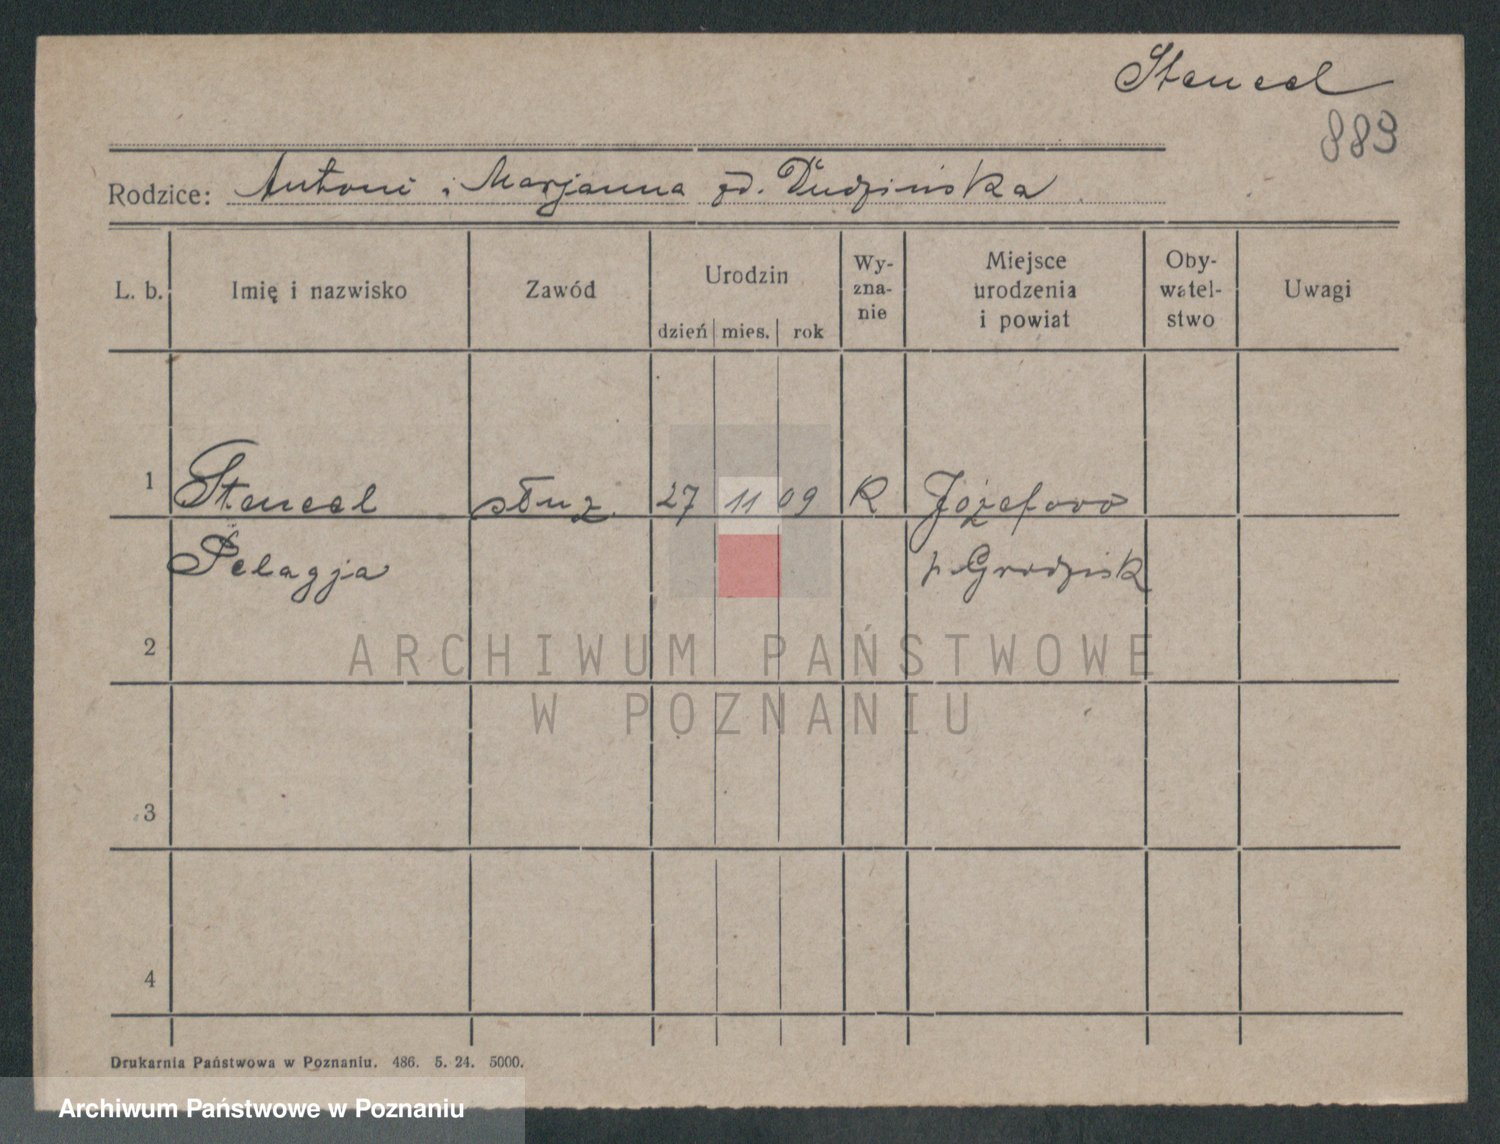 Stencel
883
Rodzice: Antoni i Marjanna zd. Dudzińska
L. b. Imię i nazwisko Zawód Urodzin dzień mies. rok Wy-zna-nie Miejsce urodzenia i powiat Oby-watel-stwo Uwagi
1 Stencel służ. 27 11 09 R Józefowo
Pelagja p. Grodzisk
2
ARCHIWUM PAŃSTWOWE
W POZNANIU
3
4
Drukarnia Państwowa w Poznaniu. 486. 5. 24. 5000.
Archiwum Państwowe w Poznaniu